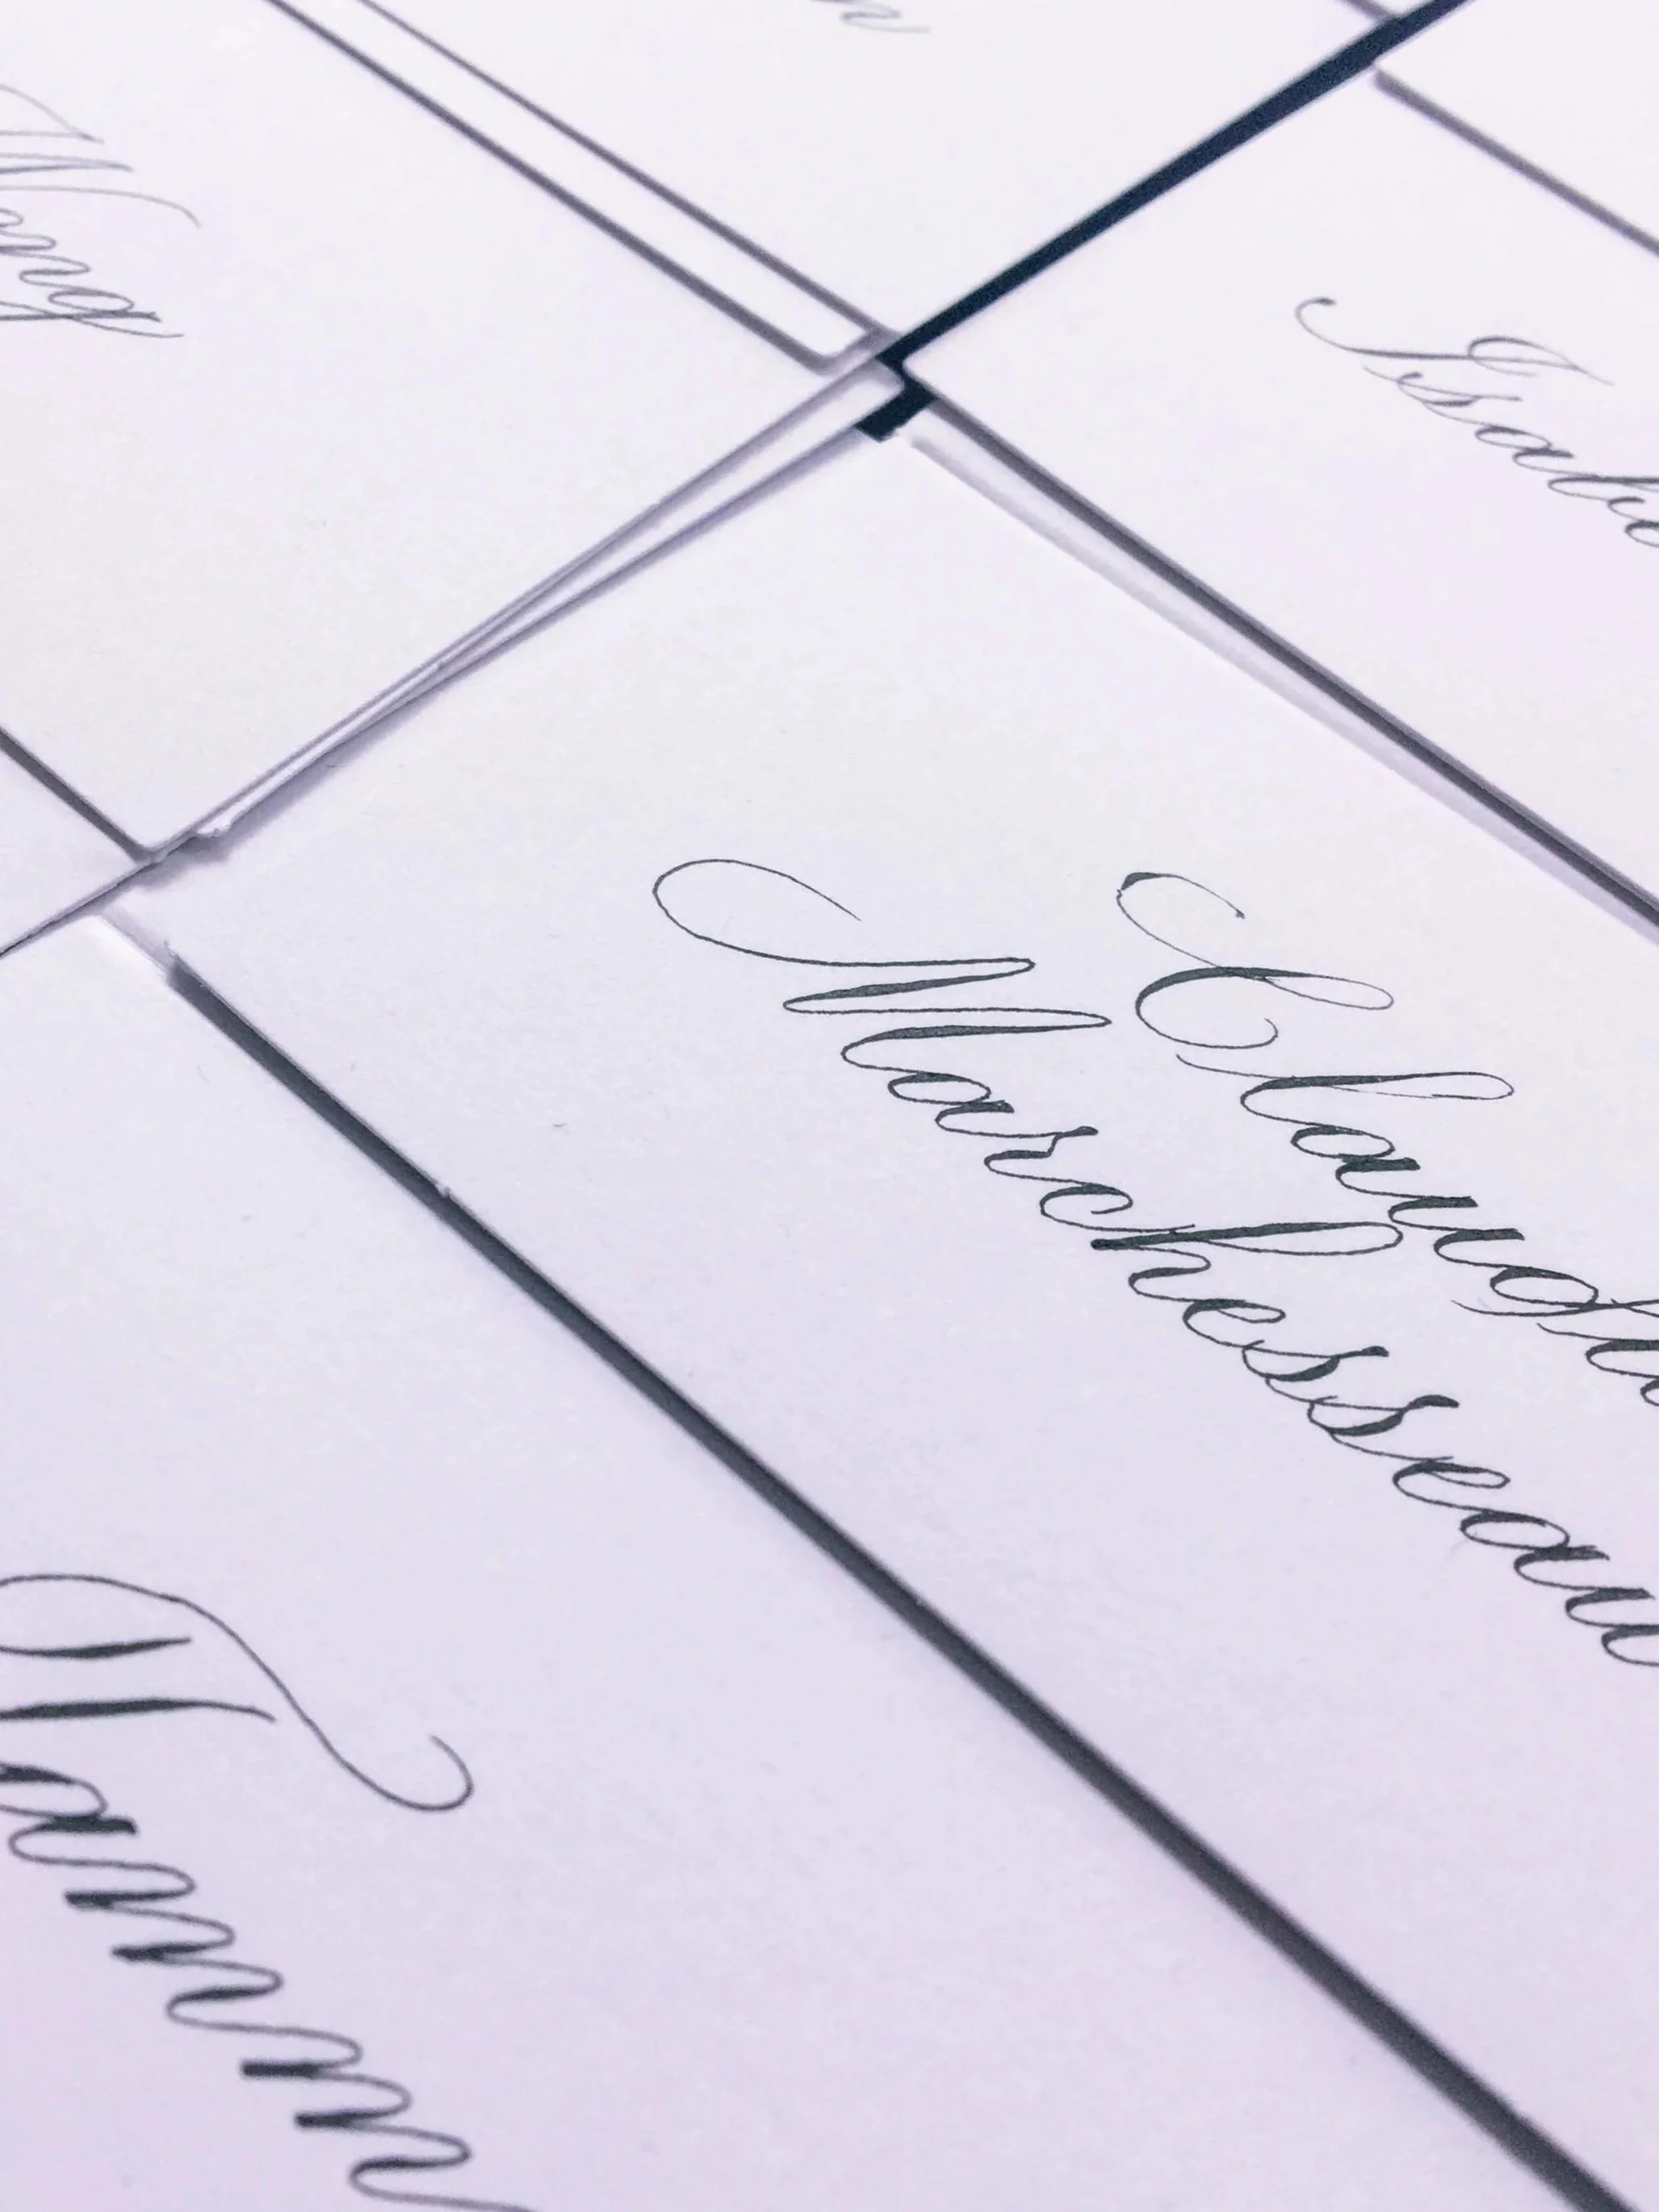 Wong
Isabe
Claudi
Marchesseau
Tamm